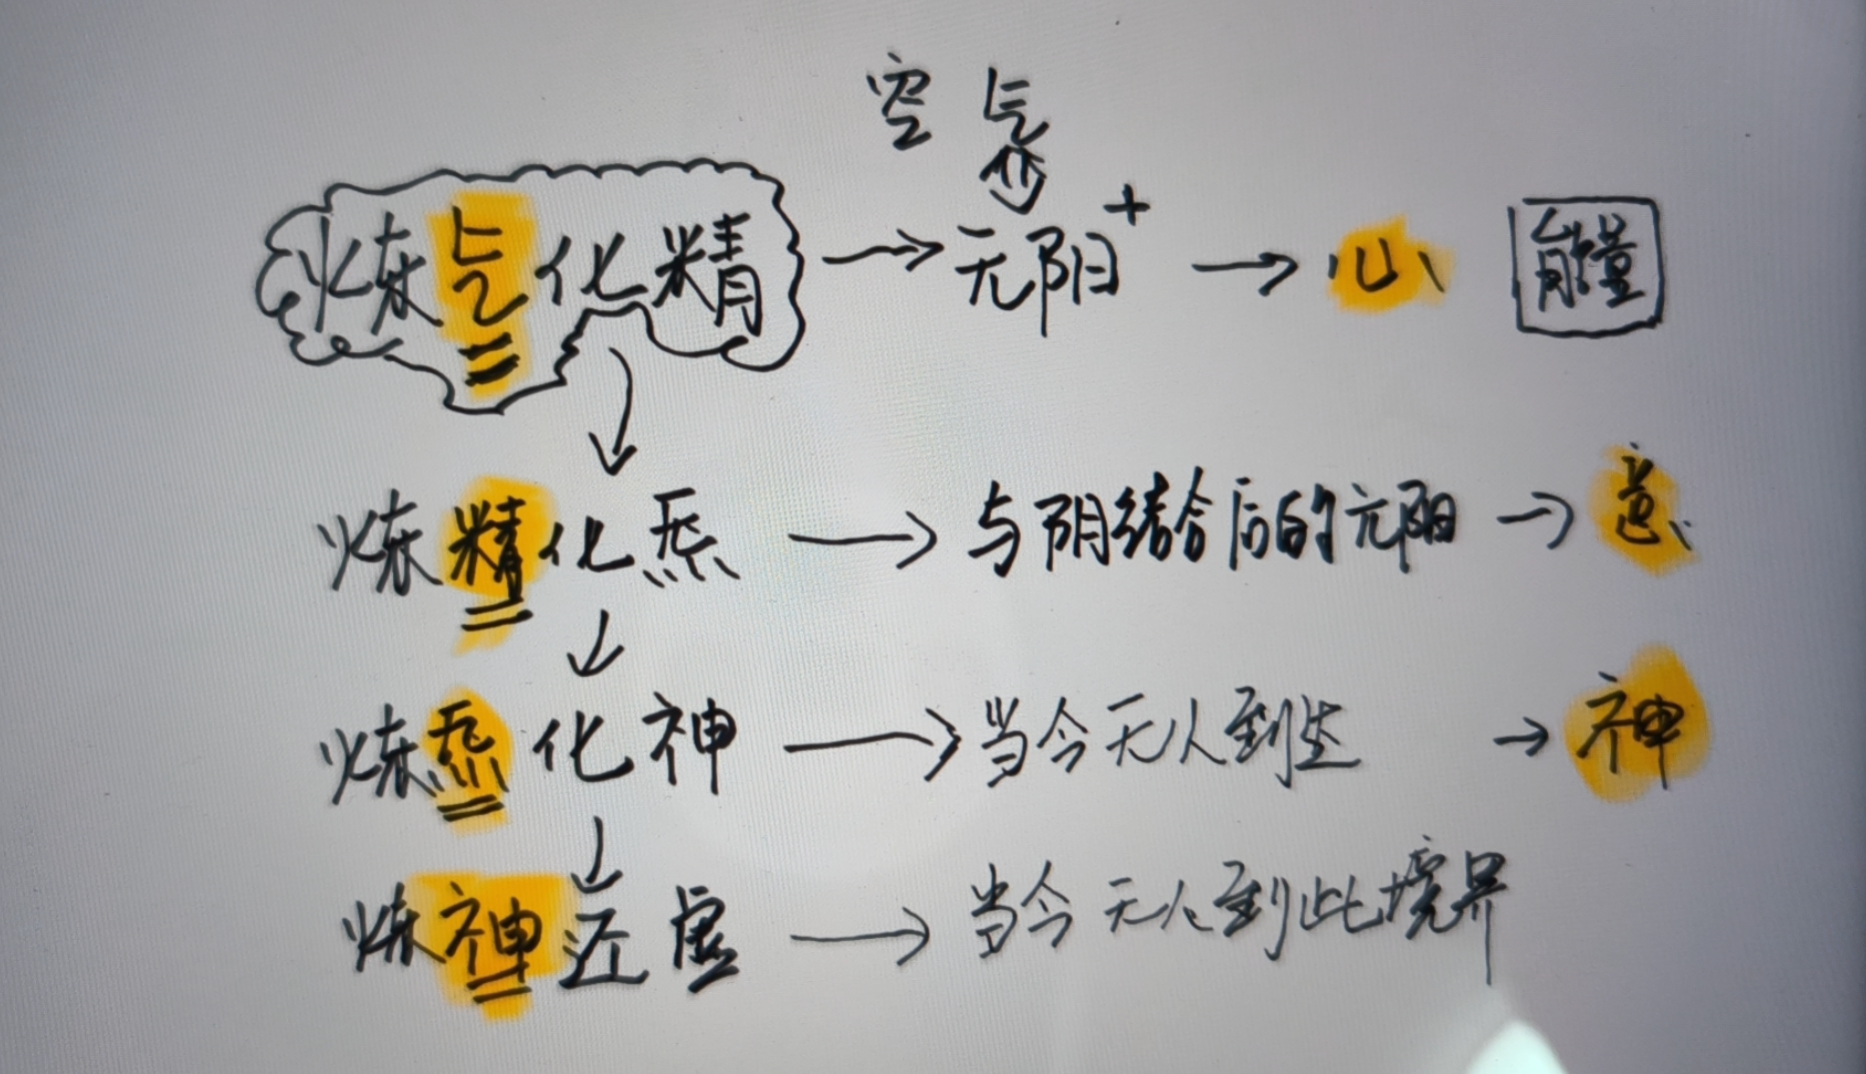 空气
炼气化精 → 元阳+ → 心 能量
炼精化炁 → 与阴结合后的元阳 → 意
炼炁化神 → 当今无人到达 → 神
炼神还虚 → 当今无人到此境界